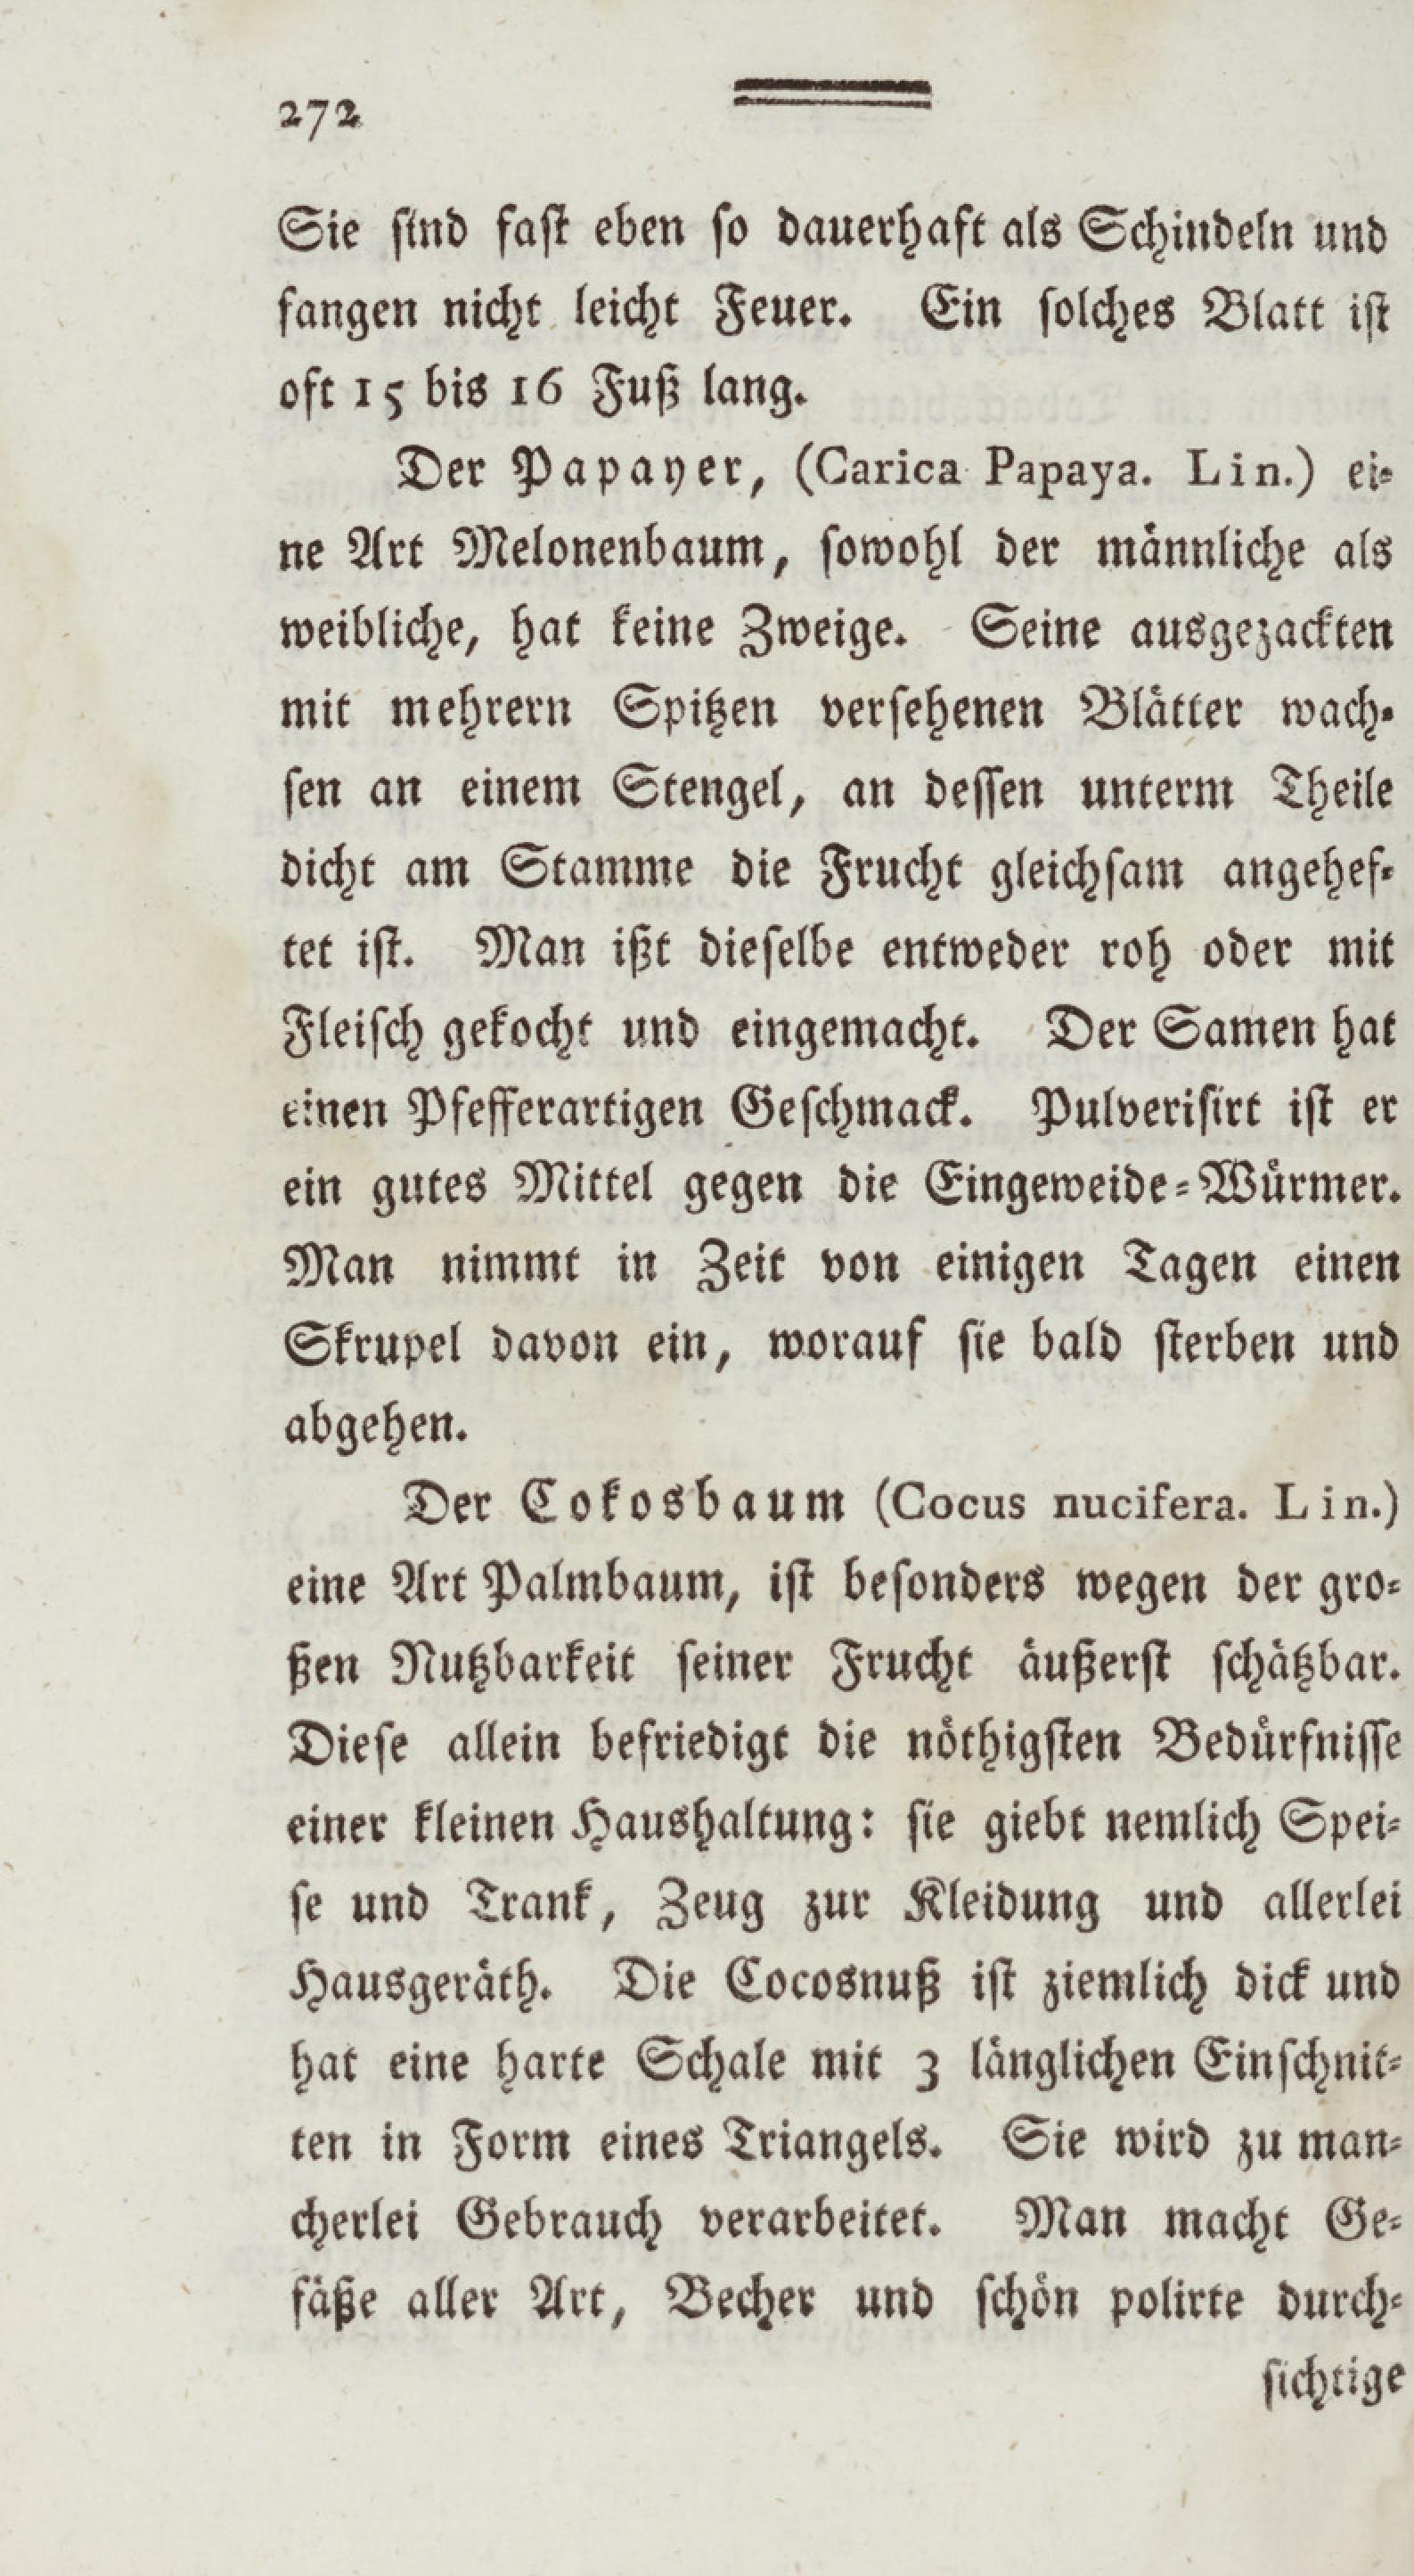 272
Sie sind fast eben so dauerhaft als Schindeln und
fangen nicht leicht Feuer. Ein solches Blatt ist
oft 15 bis 16 Fuß lang.
Der Papayer, (Carica Papaya. Lin.) ei-
ne Art Melonenbaum, sowohl der männliche als
weibliche, hat keine Zweige. Seine ausgezackten
mit mehrern Spitzen versehenen Blätter wach-
sen an einem Stengel, an dessen unterm Theile
dicht am Stamme die Frucht gleichsam angehef-
tet ist. Man ißt dieselbe entweder roh oder mit
Fleisch gekocht und eingemacht. Der Samen hat
einen Pfefferartigen Geschmack. Pulverisirt ist er
ein gutes Mittel gegen die Eingeweide-Würmer.
Man nimmt in Zeit von einigen Tagen einen
Skrupel davon ein, worauf sie bald sterben und
abgehen.
Der Cokosbaum (Cocus nucifera. Lin.)
eine Art Palmbaum, ist besonders wegen der gro-
ßen Nutzbarkeit seiner Frucht äußerst schätzbar.
Diese allein befriedigt die nöthigsten Bedürfnisse
einer kleinen Haushaltung: sie giebt nemlich Spei-
se und Trank, Zeug zur Kleidung und allerlei
Hausgeräth. Die Cocosnuß ist ziemlich dick und
hat eine harte Schale mit 3 länglichen Einschnit-
ten in Form eines Triangels. Sie wird zu man-
cherlei Gebrauch verarbeitet. Man macht Ge-
fäße aller Art, Becher und schön polirte durch-
sichtige